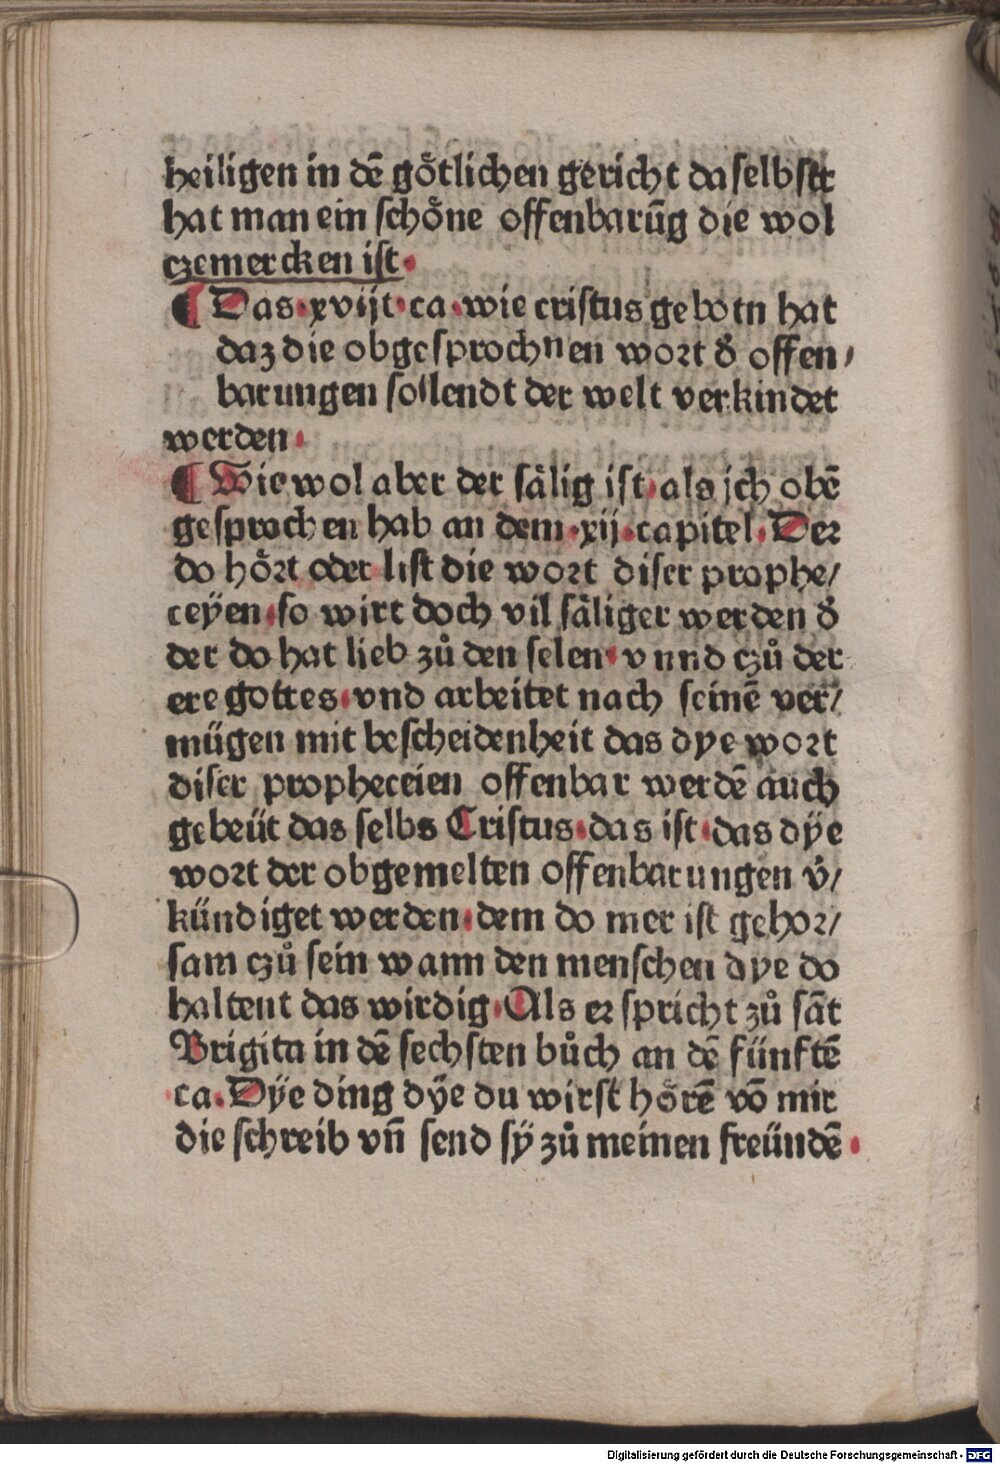 heiligen in dē gőtlichen gericht daselbstt
hat man ein schőne offenbarūg die wol
czemercken ist.
¶ Das·xvijt·ca·wie cristus gebotn hat
daz die obgesprochnen wort đ offen/
barungen sollendt der welt verkindet
werden·
¶ Wiewol aber der sälig ist·als jch obē
gesprochen hab an dem·xij·capitel·Der
do hőrt oder list die wort diser prophe/
ceÿen·so wirt doch vil säliger werden đ
der do hat lieb zů den selen·vnnd czů der
ere gottes·vnd arbeitet nach seinē ver/
mügen mit bescheidenheit das dye wort
diser propheceien offenbar werdē auch
gebeüt das selbs Cristus·das ist·das dÿe
wort der obgemelten offenbarungen v̉/
kündiget werden·dem do mer ist gehor/
sam czů sein wann den menschen dye do
haltent das wirdig·Als er spricht zů sāt
Brigita in dē sechsten bůch an dē fünftē
ca·Dÿe ding dÿe du wirst hőrē vō mir
die schreib vn̄ send sÿ zů meinen freündē·
Digitalisierung gefördert durch die Deutsche Forschungsgemeinschaft - DFG